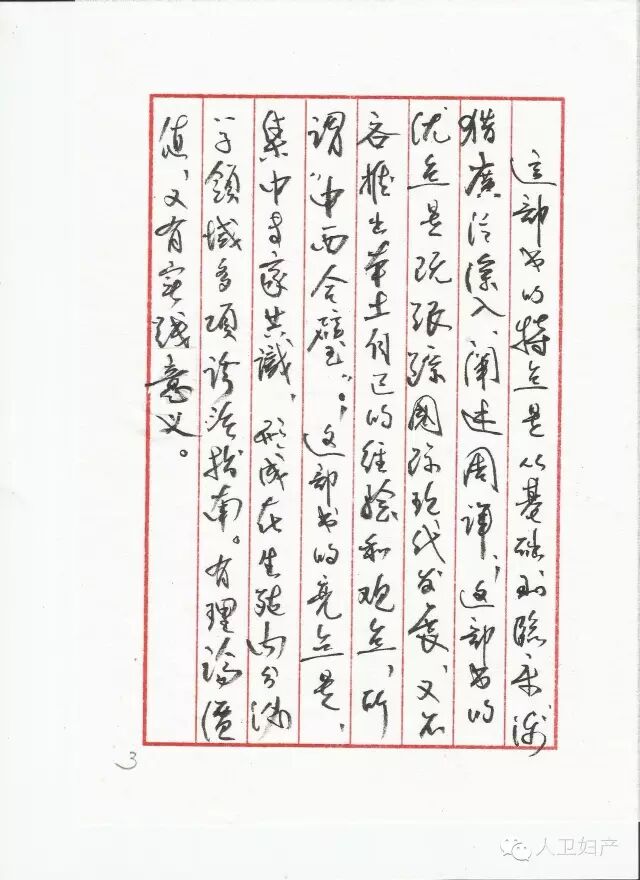 这部书的特点是从基础到臨床,涉
猎廣泛深入,阐述周详;这部书的
优点是既跟踪国际现代发展,又不
吝推出本土自己的经验和观点,所
谓“中西合璧”。;这部书的亮点是,
集中专家共識,形成在生殖内分泌
学領域多项诊治指南。有理論價
值,又有实践意义。
3
人卫妇产